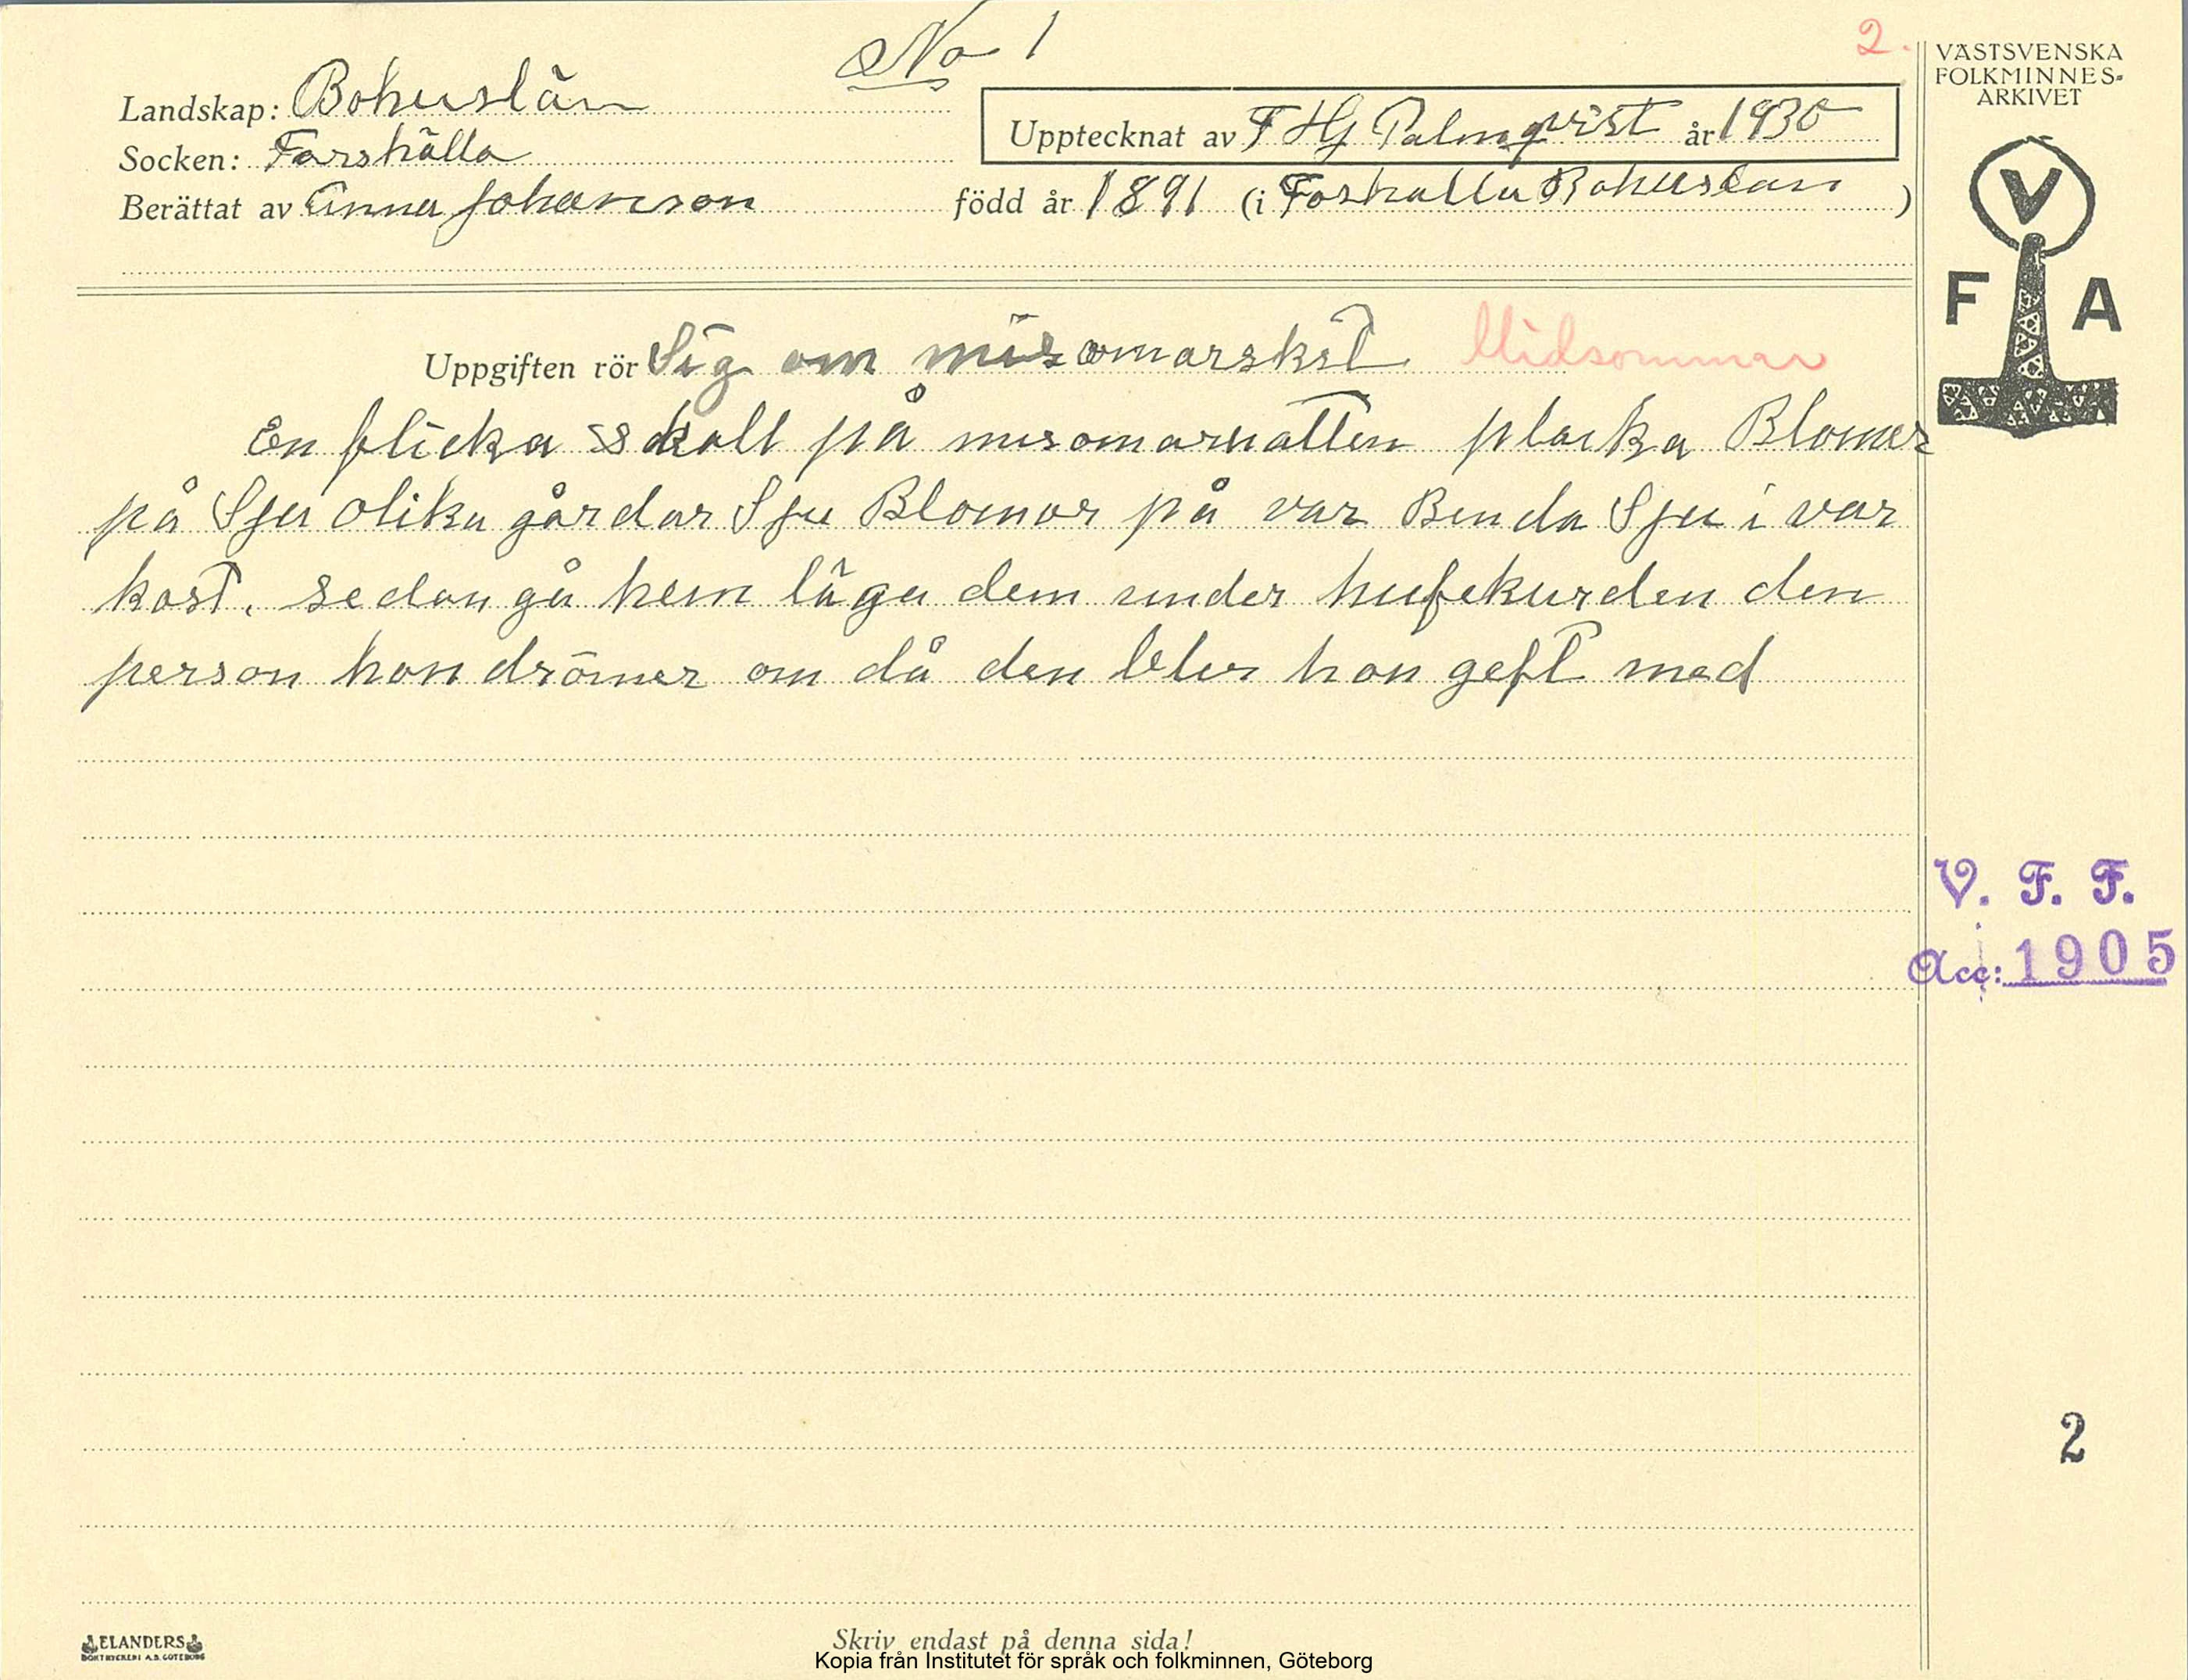 No 1
2.
VÄSTSVENSKA
FOLKMINNES-
ARKIVET
Landskap: Bohuslän
Upptecknat av F Hj Palmqvist år 1930
Socken: Forshälla
Berättat av Anna Johanson född år 1891 (i Forshälla Bohuslän)
V
F A
Uppgiften rör Sig om misomarskil Midsommar
En flicka skall på misomarnatten plocka Blomer
på Sju olika gårdar Sju Blomor på var Binda Sju i var
kost. sedan gå hem läga dem under hufekurden den
person hon drömer om då den blir hon geft med
V. F. F.
Acc: 1905
2
ELANDERS
BOKTRYCKERI A.B. GÖTEBORG
Skriv endast på denna sida!
Kopia från Institutet för språk och folkminnen, Göteborg